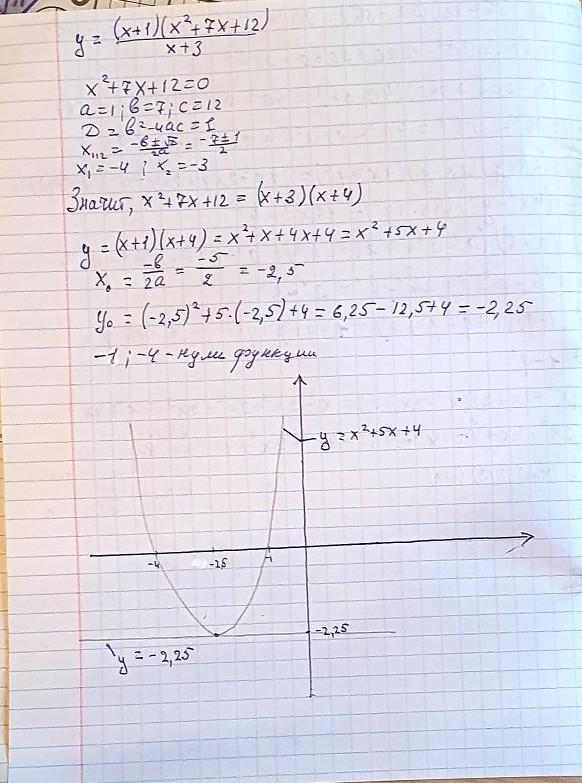 y = (x+1)(x²+7x+12) / x+3
x²+7x+12=0
a=1; b=7; c=12
D = b²-4ac = 1
x₁,₂ = -b±√D / 2a = -7±1 / 2
x₁=-4 ; x₂=-3
Значит, x²+7x+12 = (x+3)(x+4)
y = (x+1)(x+4) = x²+x+4x+4 = x²+5x+4
x₀ = -b / 2a = -5 / 2 = -2,5
y₀ = (-2,5)²+5·(-2,5)+4 = 6,25-12,5+4 = -2,25
-1 ; -4 - нули функции
y = x²+5x+4
-4 -2,5 -1
-2,25
y = -2,25